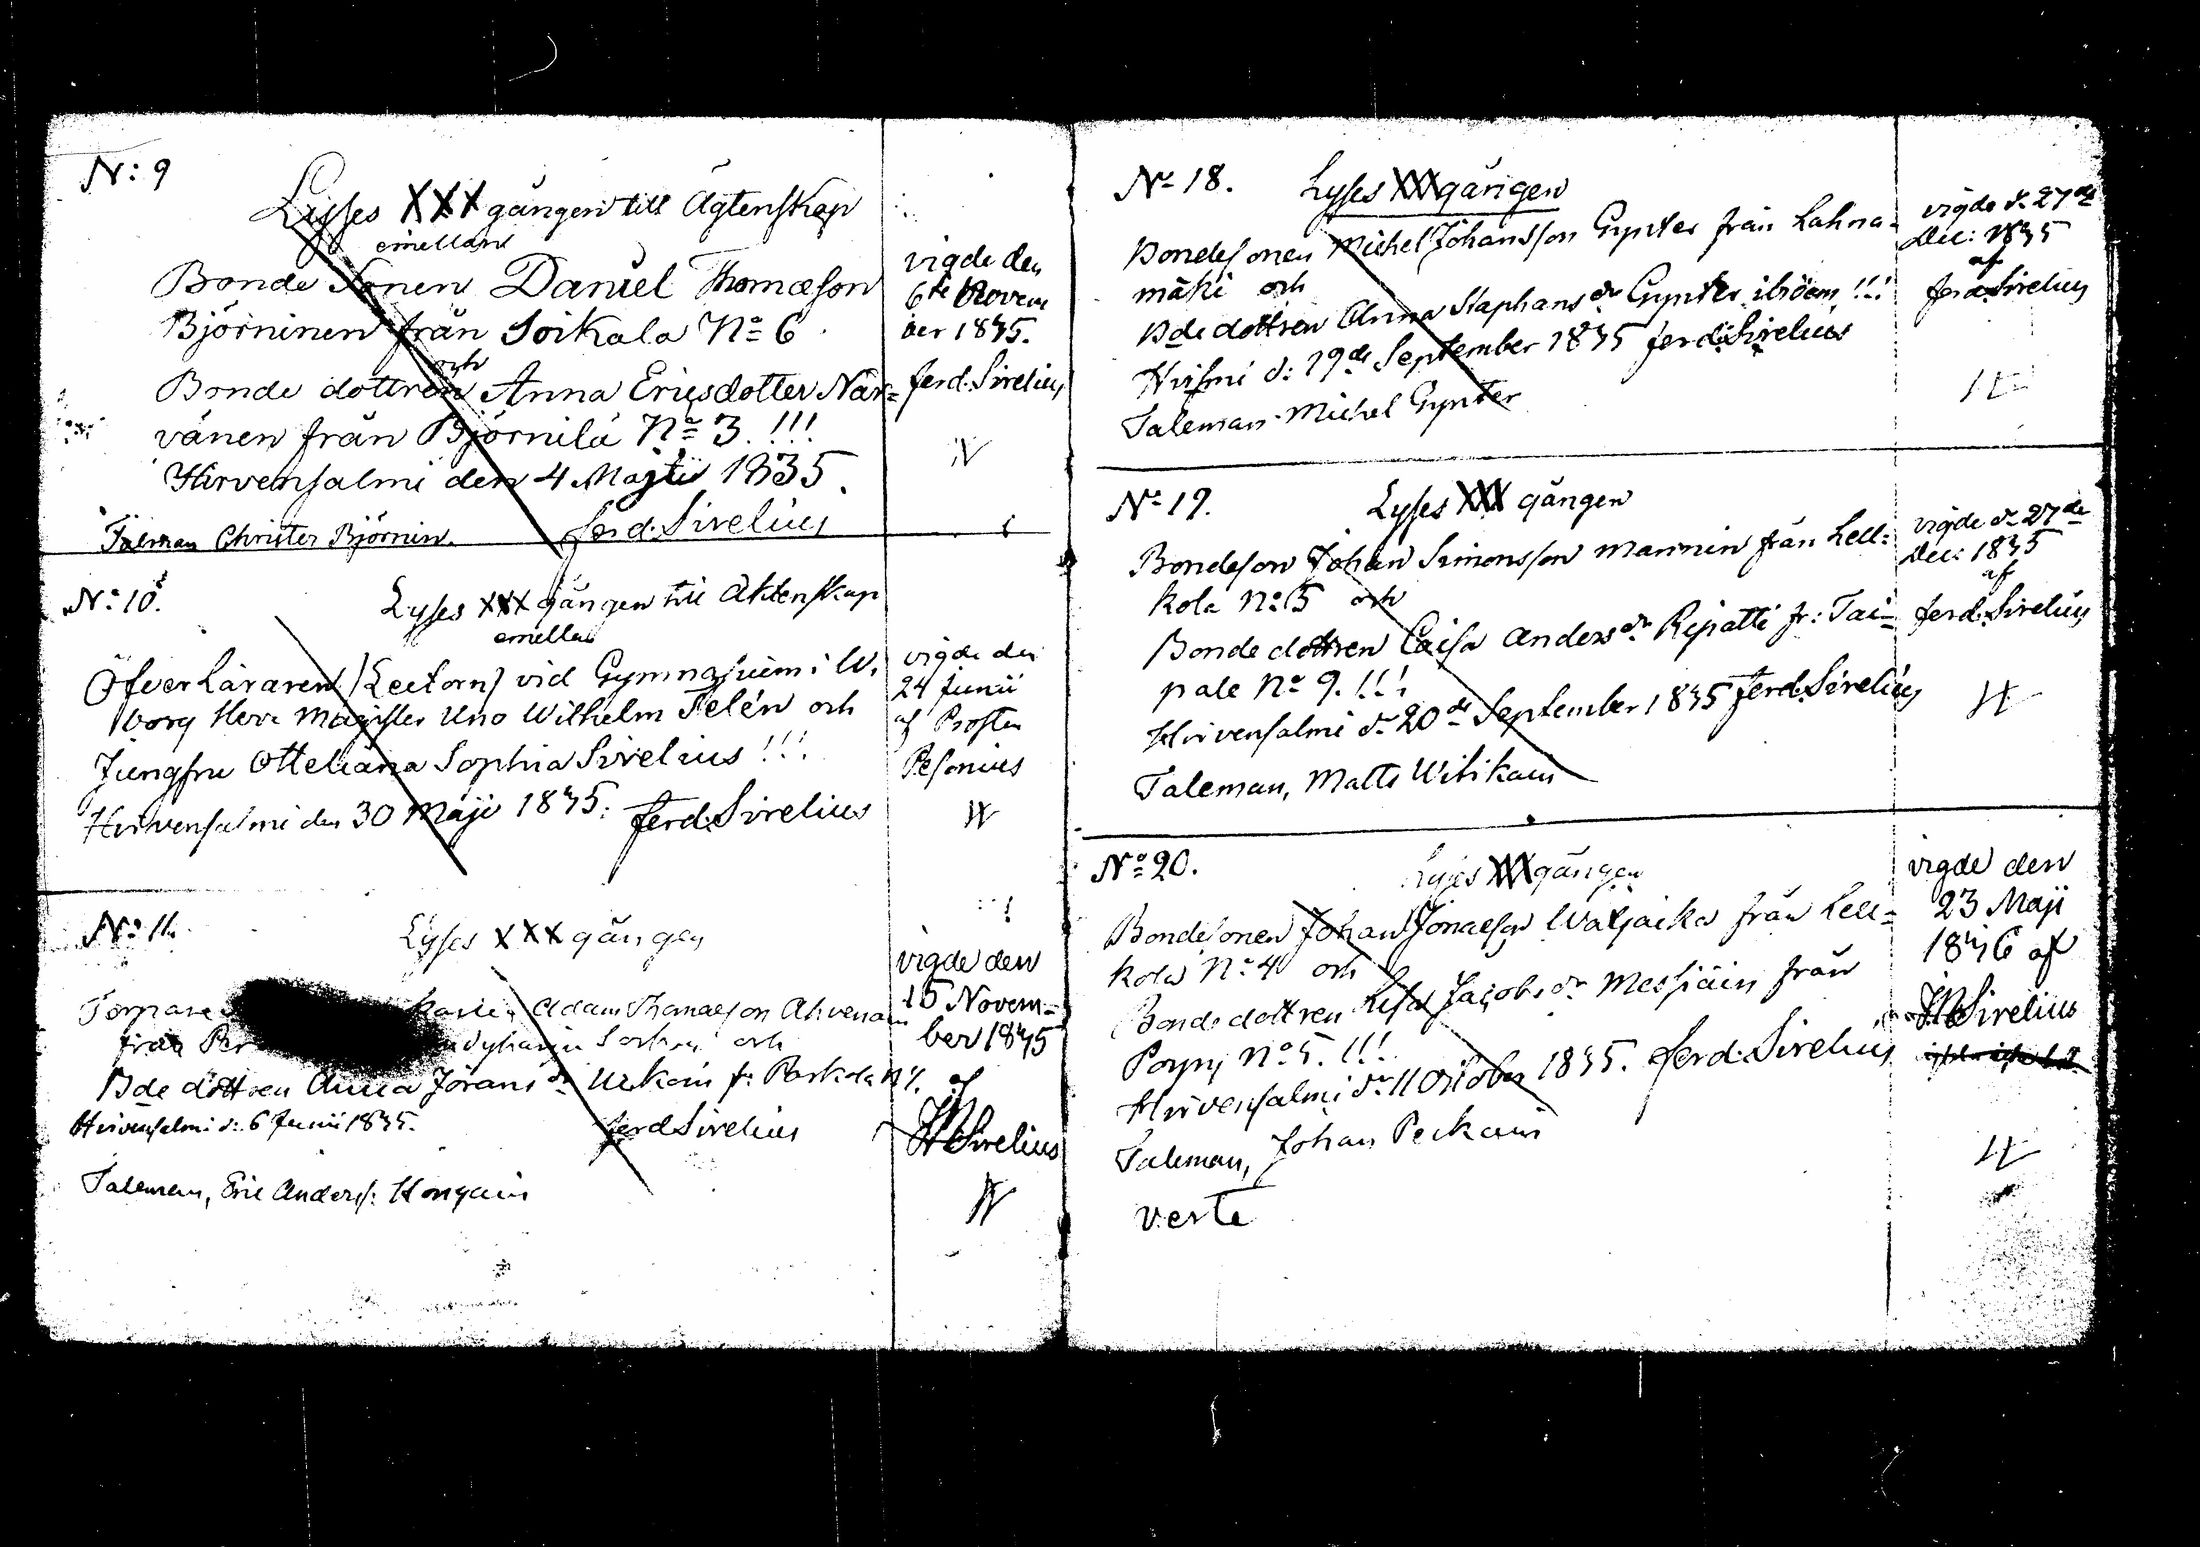 N: 9
Lyses XXX gången till Ägtenskap
emellan
Bonde Sonen Daniel Thomæson
Björninen från Soikala No 6
och
Bonde dottren Anna Ericsdotter När=
vänen från Björnilä No 3. !!!
Hirvensalmi den 4 Maji 1835.
Talman Christer Björnin. Ferd: Sirelius
vigde den
6te Novem
ber 1835.
Ferd: Sirelius
No 10.
Lyses XXX gången till Äktenskap
emellan
Öfver Läraren /Lectorn/ vid Gymnasium i W.
borg Herr Magister Uno Wilhelm Telén och
Jungfru Otteliana Sophia Sirelius !!!
Hirvensalmi den 30 Maji 1835. Ferd: Sirelius
vigde den
24 Junii
af Prosten
Pesonius
No 11.
Lyses XXX gången
Torpare Adam Thomæson Ahvenain
från och
Bde dottren Anna Jörans dr Ukkoin fr: Parkola No
Hirvensalmi d: 6 Junii 1835. Ferd Sirelius
Taleman, Eric Anders: Hongain
vigde den
15 Novem=
ber 1835
af
Sirelius
No 18. Lyses XXX gången
Bondesonen Michel Johansson Gynter från Lahna=
mäki och
Bde dottren Anna Staphans dr Gynter ibidem !!!
Hvilmi d: 19de September 1835 Ferd: Sirelius
Taleman Michel Gynter
vigde d. 27de
Dec: 1835
af
Ferd: Sirelius
No 19. Lyses XXX gången
Bondeson Johan Simonsson Mannin från Lell=
kola No 5 och
Bonde dottren Caisa Anders dr Repatti fr: Tai=
pale No 9. !!!
Hirvensalmi d. 20de September 1835 Ferd: Sirelius
Taleman, Matts Witikain
vigde d. 27de
Dec: 1835
af
Ferd: Sirelius
No 20. Lyses XXX gången
Bondesonen Johan Jonæson från Lell=
kola No 4 och
Bonde dottren Lisa Jacobs dr från
No 5. !!!
Hirvensalmi d. 11 October 1835. Ferd: Sirelius
Taleman, Johan Peckain
verte
vigde den
23 Maji
1836 af
Sirelius